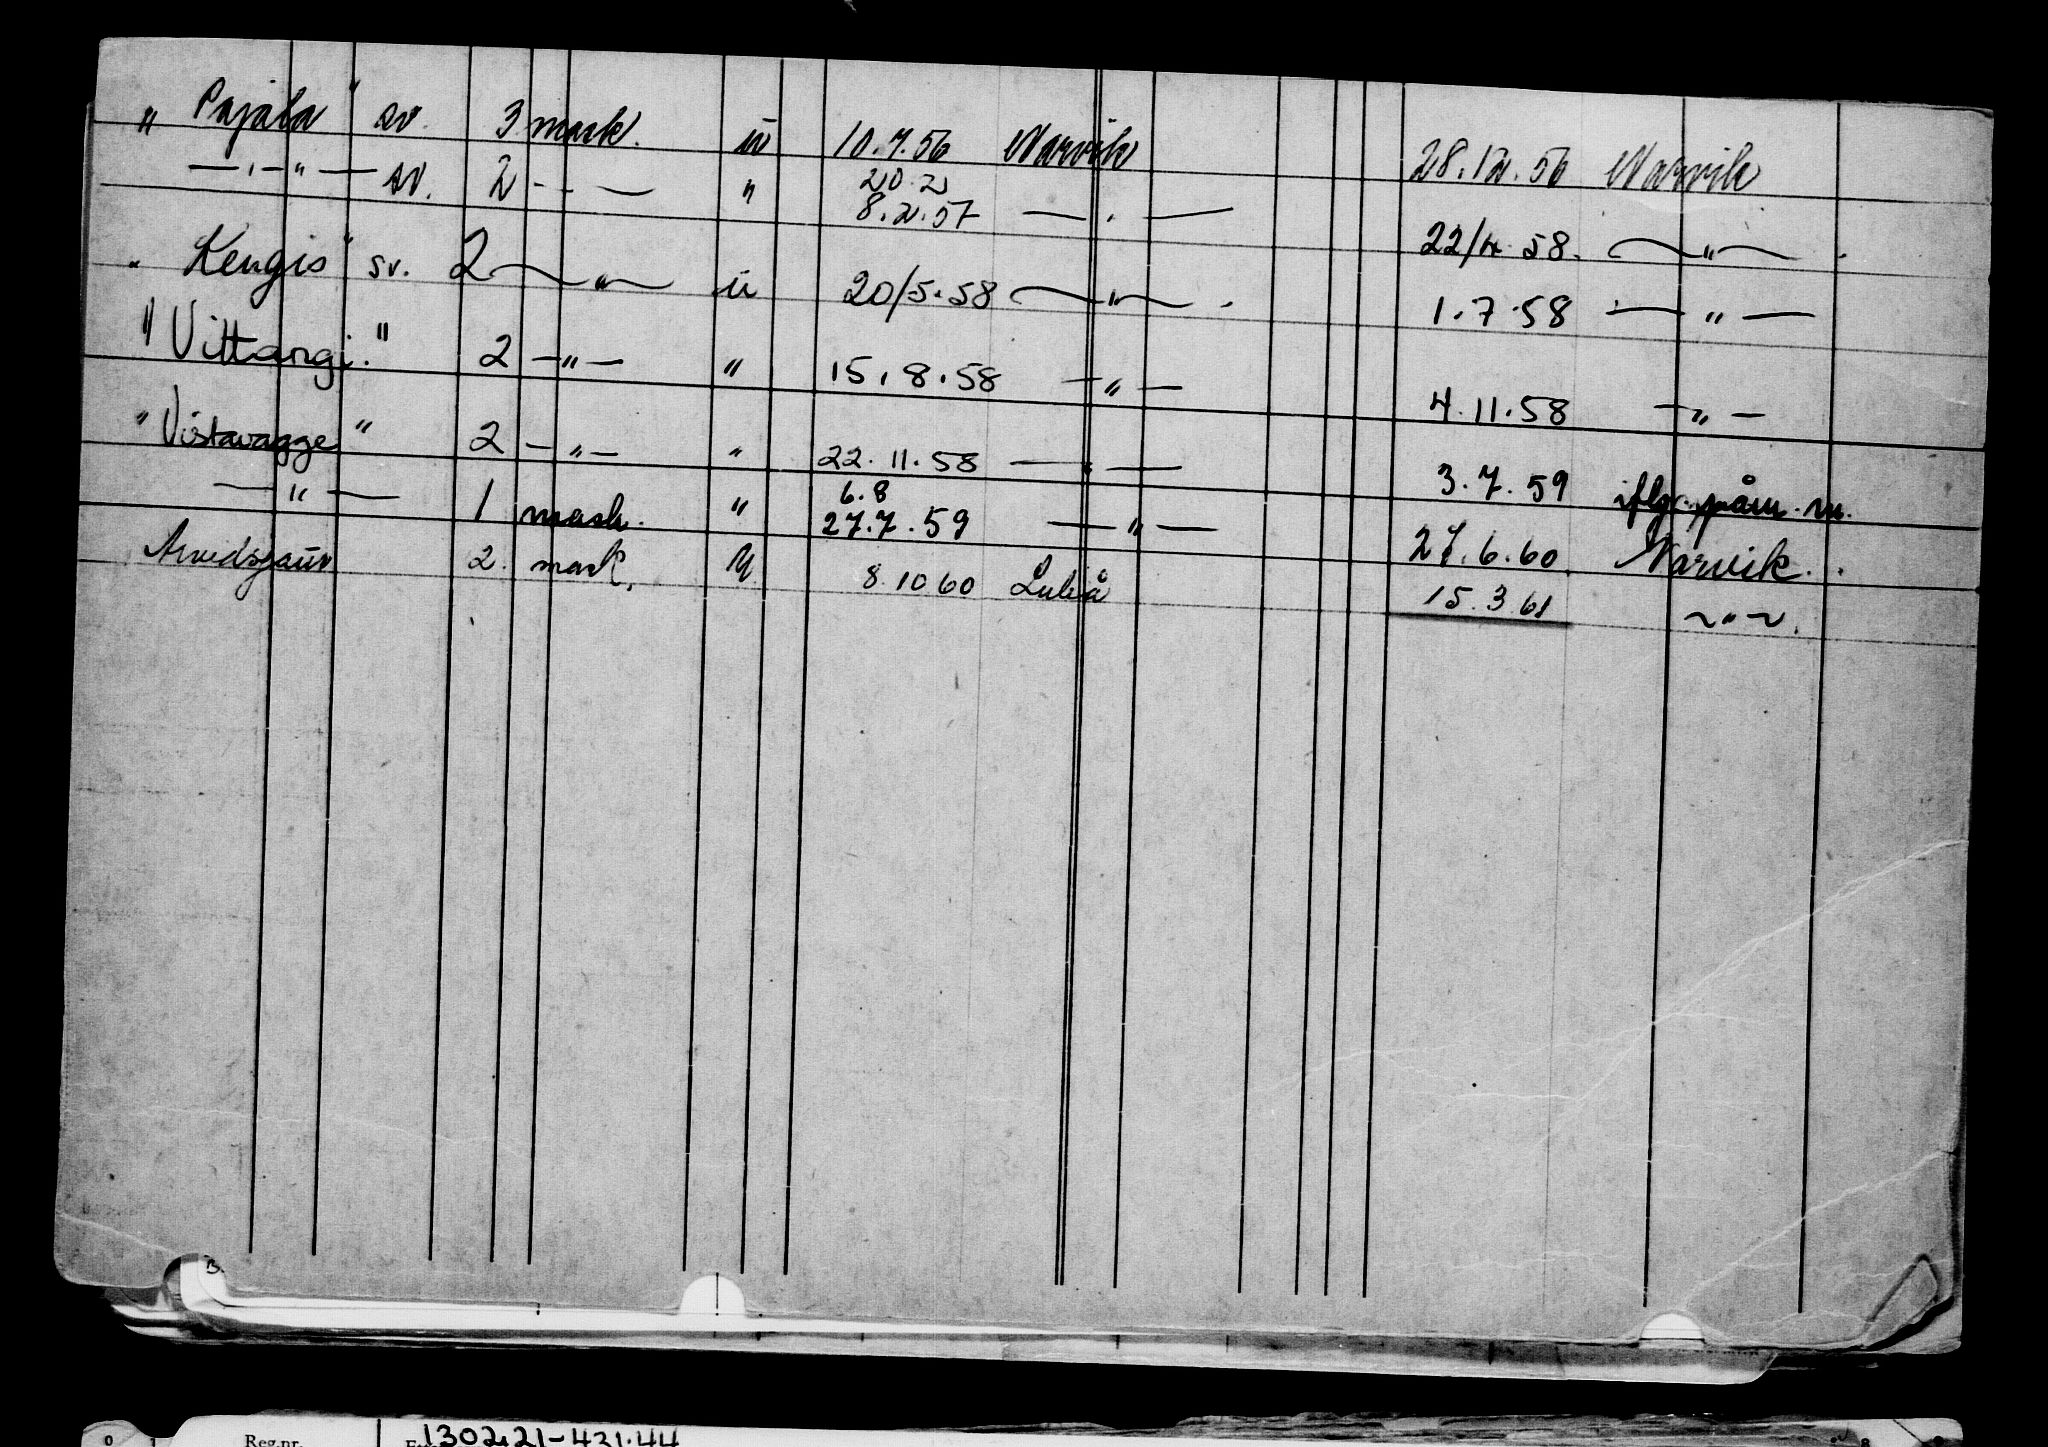 " Pajala " sv. 3 mask. u 10.7.56 Narvik 28.12.56 Narvik
— " — sv. 2 — — " 20.2 8.2.57 — " — 22/4 58. — " — .
" Kengis " sv. 2 — " — u 20/5.58 — " — . 1.7.58 — " —
" Vittangi. " 2 — " — " 15.8.58 — " — 4.11.58 — " —
" Vistavagge " 2 — " — " 22.11.58 — " — 3.7.59 iflg. påm. nr.
— " — 1 mask. " 6.8 27.7.59 — " — 27.6.60. Narvik.
Arvidsjaur 2. mask. u 8.10 60 Luleå 15.3 61 — " — .
B.
0 1 Reg.nr. 130221-431.44 8